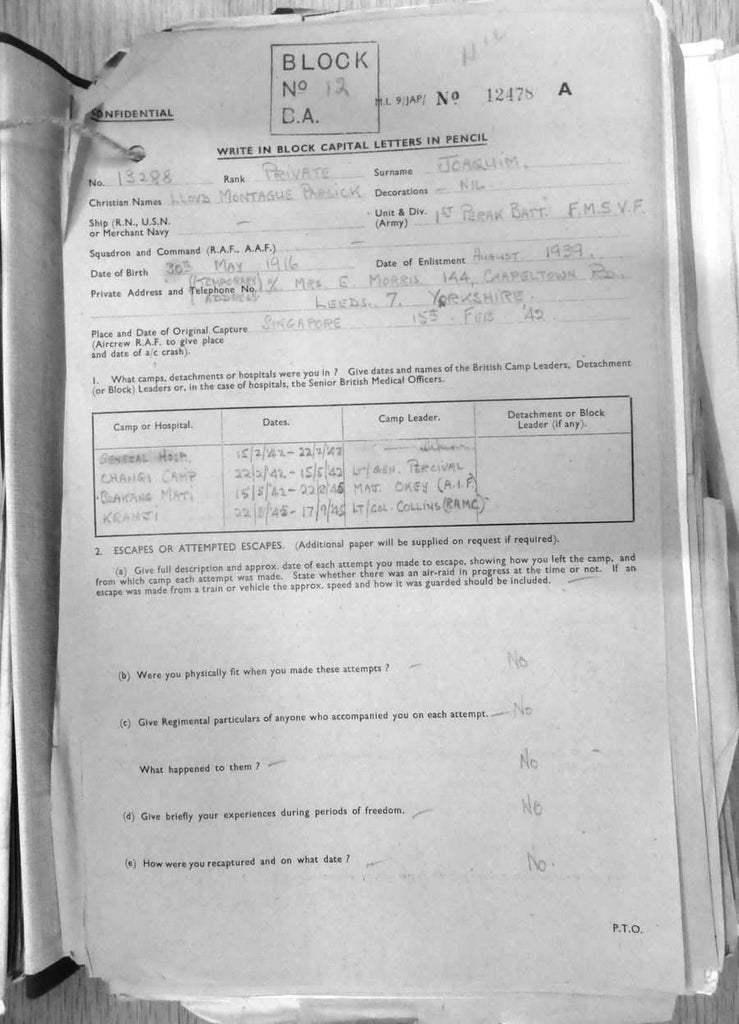 NIL
BLOCK
No 12
B.A.
M.I. 9/JAP/ No 12478 A
CONFIDENTIAL
WRITE IN BLOCK CAPITAL LETTERS IN PENCIL
No. 13288 Rank PRIVATE Surname JOAQUIM.
Christian Names LLOYD MONTAGUE PARSICK Decorations – NIL.
Ship (R.N., U.S.N. or Merchant Navy –
Unit & Div. (Army) 1ST PERAK BATT. F.M.S.V.F.
Squadron and Command (R.A.F., A.A.F.) –
Date of Birth 30TH MAY 1916 Date of Enlistment AUGUST 1939.
Private Address and Telephone No. (TEMPORARY ADDRESS) C/o MRS E. MORRIS 144, CHAPELTOWN RD.
LEEDS. 7. YORKSHIRE.
Place and Date of Original Capture SINGAPORE 15TH FEB '42.
(Aircrew R.A.F. to give place
and date of a/c crash).
1. What camps, detachments or hospitals were you in ? Give dates and names of the British Camp Leaders, Detachment
(or Block) Leaders or, in the case of hospitals, the Senior British Medical Officers.
Camp or Hospital. Dates. Camp Leader. Detachment or Block Leader (if any).
GENERAL HOSP. 15/2/42 – 22/2/42
CHANGI CAMP 22/2/42 – 15/5/42 LT/GEN. PERCIVAL
BLAKANG MATI 15/5/42 – 22/8/45 MAJ. OKEY (A.I.F)
KRANJI 22/8/45 – 17/9/45 LT/COL. COLLINS (RAMC)
2. ESCAPES OR ATTEMPTED ESCAPES. (Additional paper will be supplied on request if required).
(a) Give full description and approx. date of each attempt you made to escape, showing how you left the camp, and
from which camp each attempt was made. State whether there was an air-raid in progress at the time or not. If an
escape was made from a train or vehicle the approx. speed and how it was guarded should be included. –
(b) Were you physically fit when you made these attempts ? – No
(c) Give Regimental particulars of anyone who accompanied you on each attempt. – No
What happened to them ? – No
(d) Give briefly your experiences during periods of freedom. – No
(e) How were you recaptured and on what date ? – No.
P.T.O.